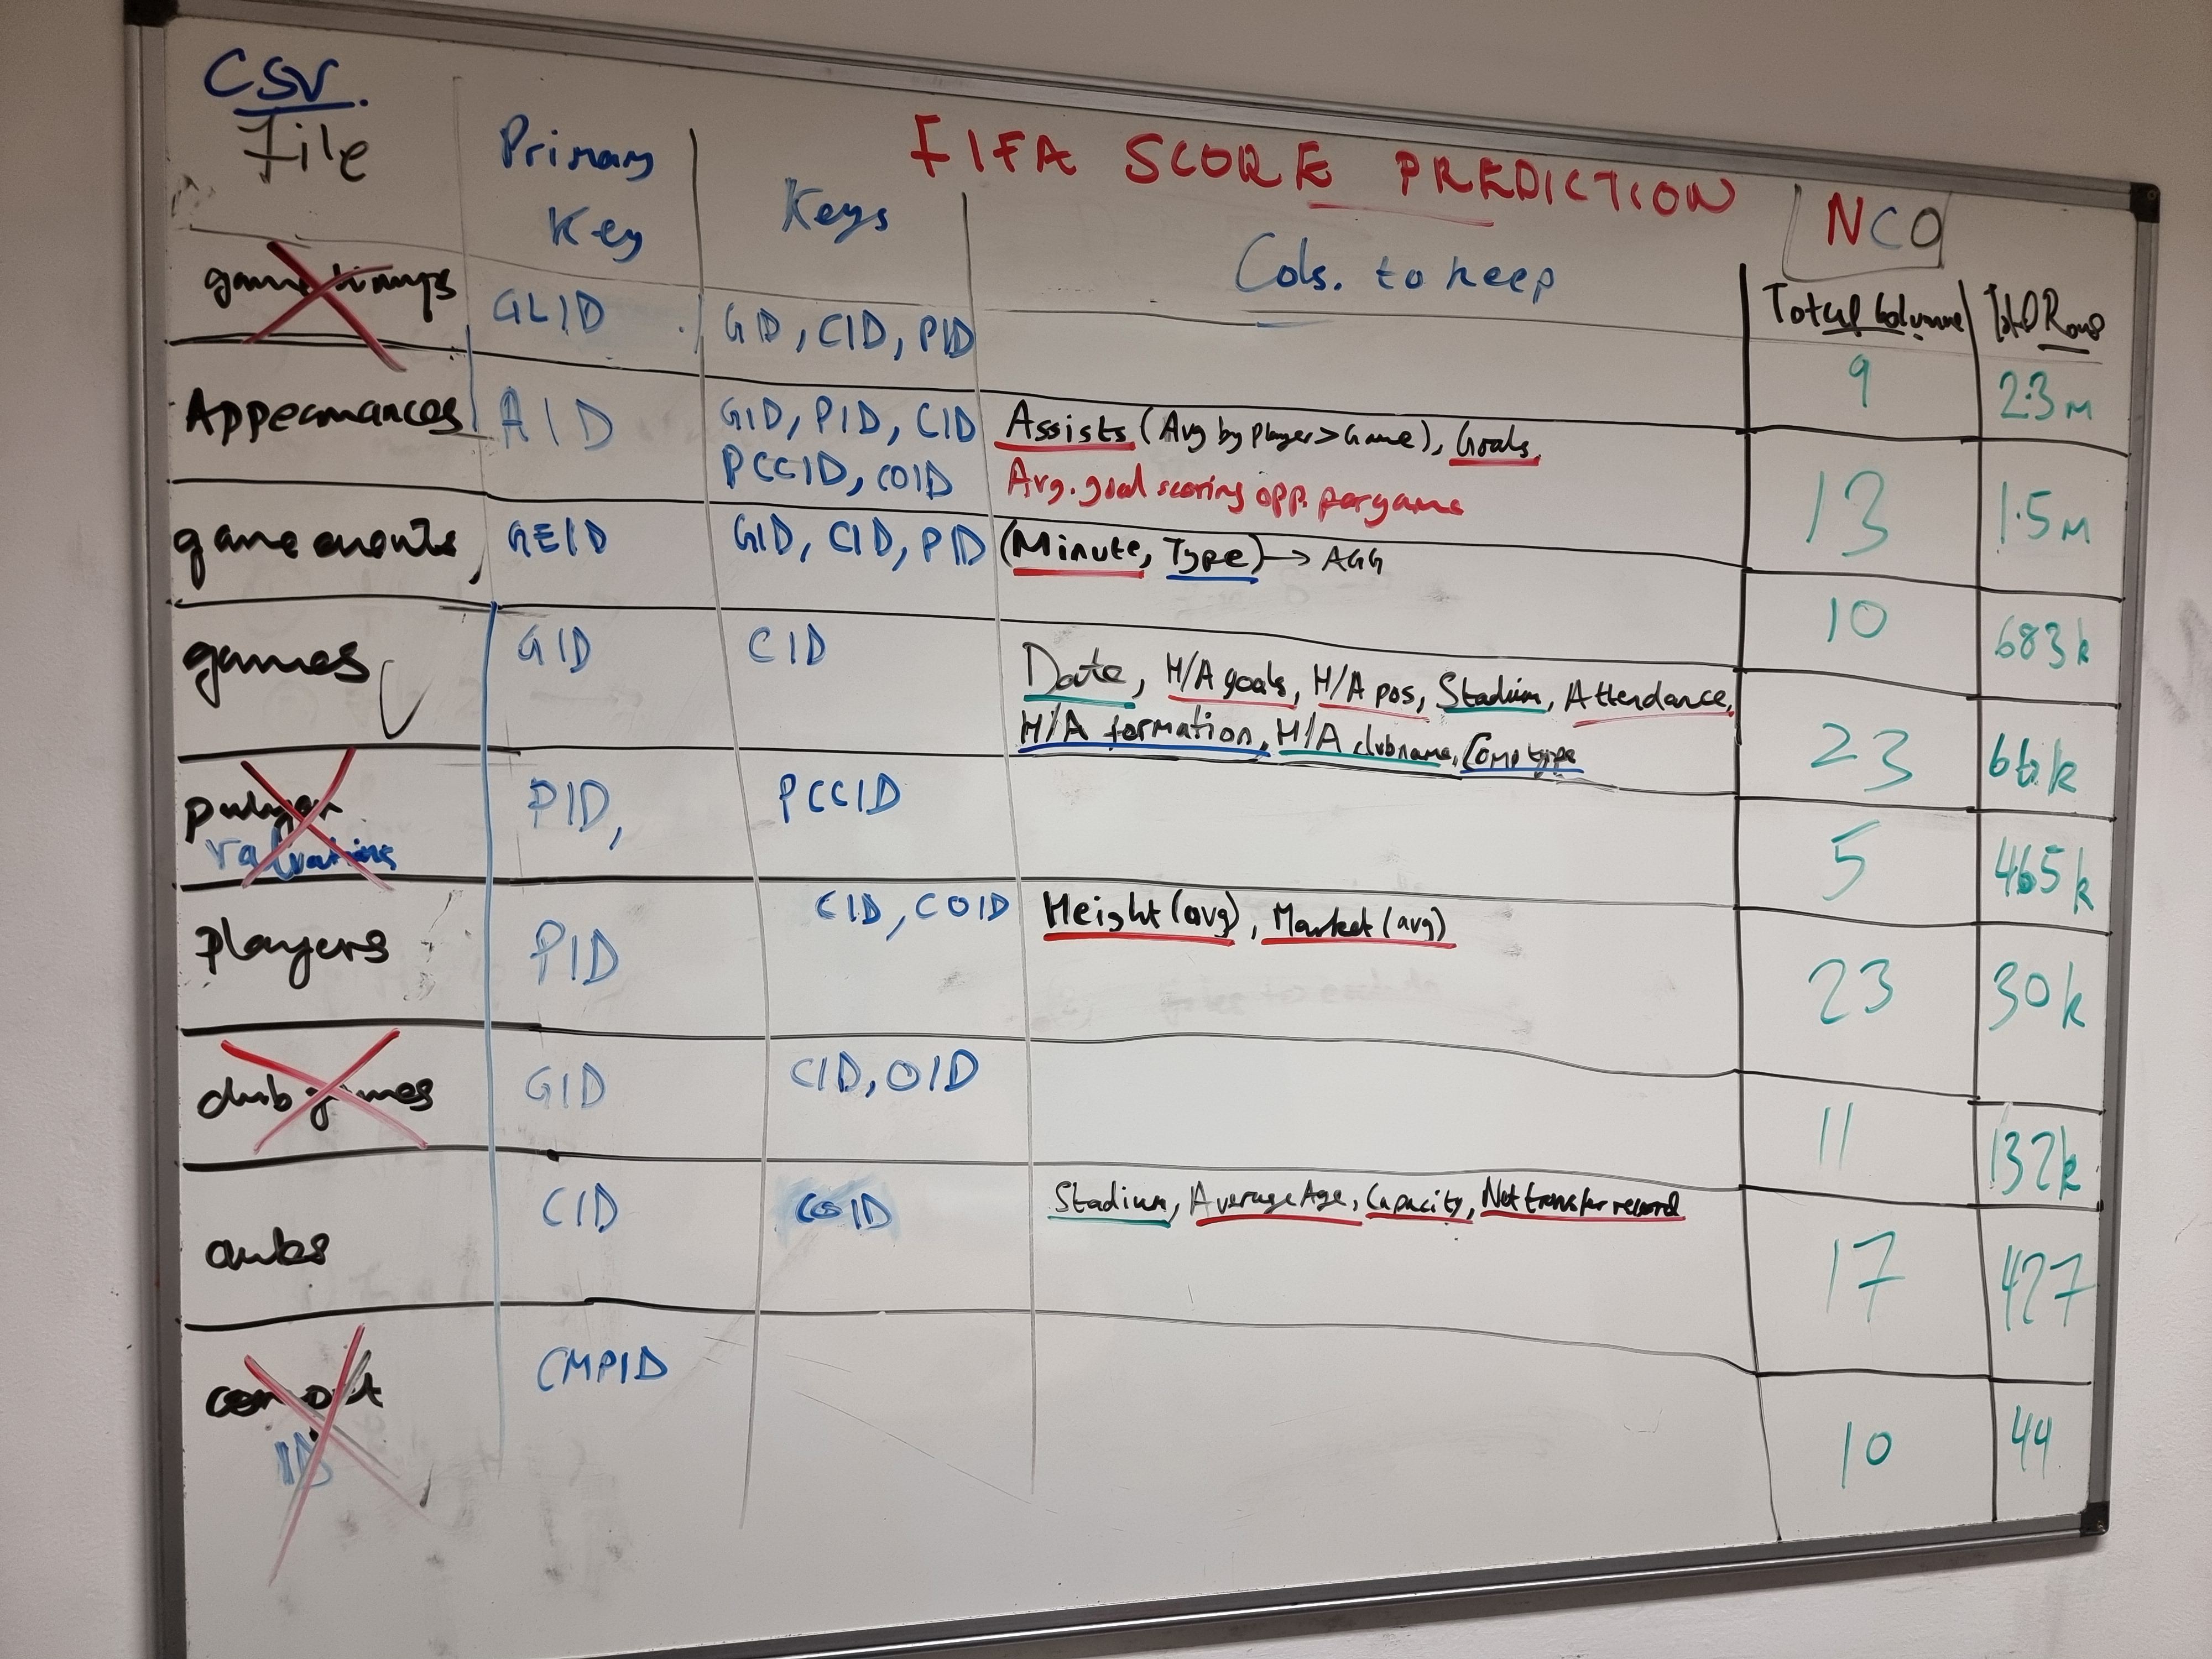 CSV.
File
Primary
Key
Keys
FIFA SCORE PREDICTION
Cols. to keep
NCO
Total Columns
Total Rows
GLID
GID, CID, PID
9
2.3M
Appearances
AID
GID, PID, CID
PCCID, COID
Assists (Avg by player>Game), Goals,
Avg. goal scoring opp. per game
13
1.5M
game events,
GEID
GID, CID, PID
(Minute, Type) → AGG
10
683k
games
GID
CID
Date, H/A goals, H/A pos, Stadium, Attendance,
H/A formation, H/A clubname, Comp type
23
66k
player
valuations
PID,
PCCID
5
465k
Players
PID
CID, COID
Height (avg), Market (avg)
23
30k
club games
GID
CID, OID
11
132k
clubs
CID
COID
Stadium, Average Age, Capacity, Net transfer record
17
427
ID
CMPID
10
44